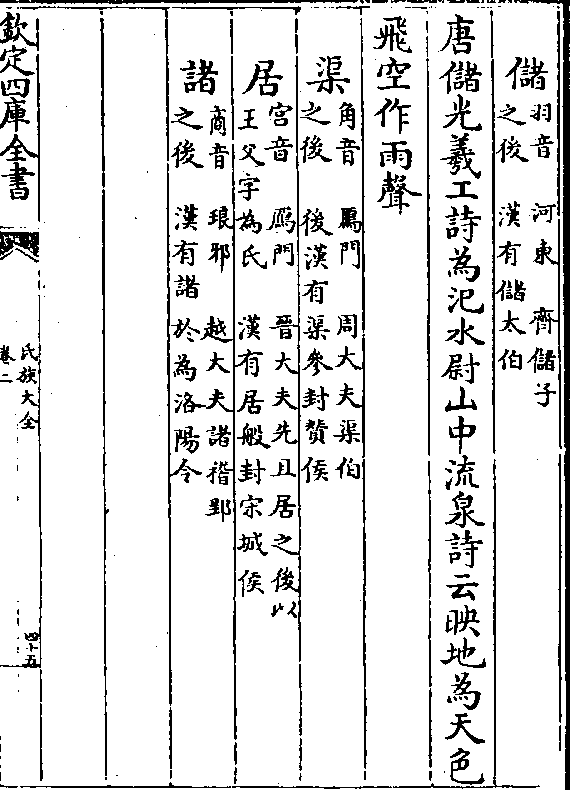 儲
羽音 河東 齊儲子
之後 漢有儲太伯
唐儲光羲工詩為汜水尉山中流泉詩云映地為天色
飛空作雨聲
渠
角音 鴈門 周大夫渠伯
之後 後漢有渠參封贊侯
居
宫音 鴈門 晉大夫先且居之後以
王父字為氏 漢有居般封宋城侯
諸
商音 琅邪 越大夫諸稽郢
之後 漢有諸於為洛陽令
欽定四庫全書
氏族大全
卷二
四十五